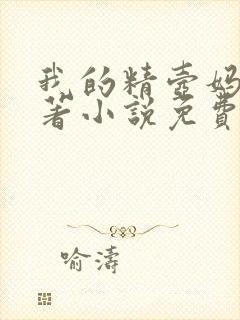 我的精壺妈
著小説免費
喻濤